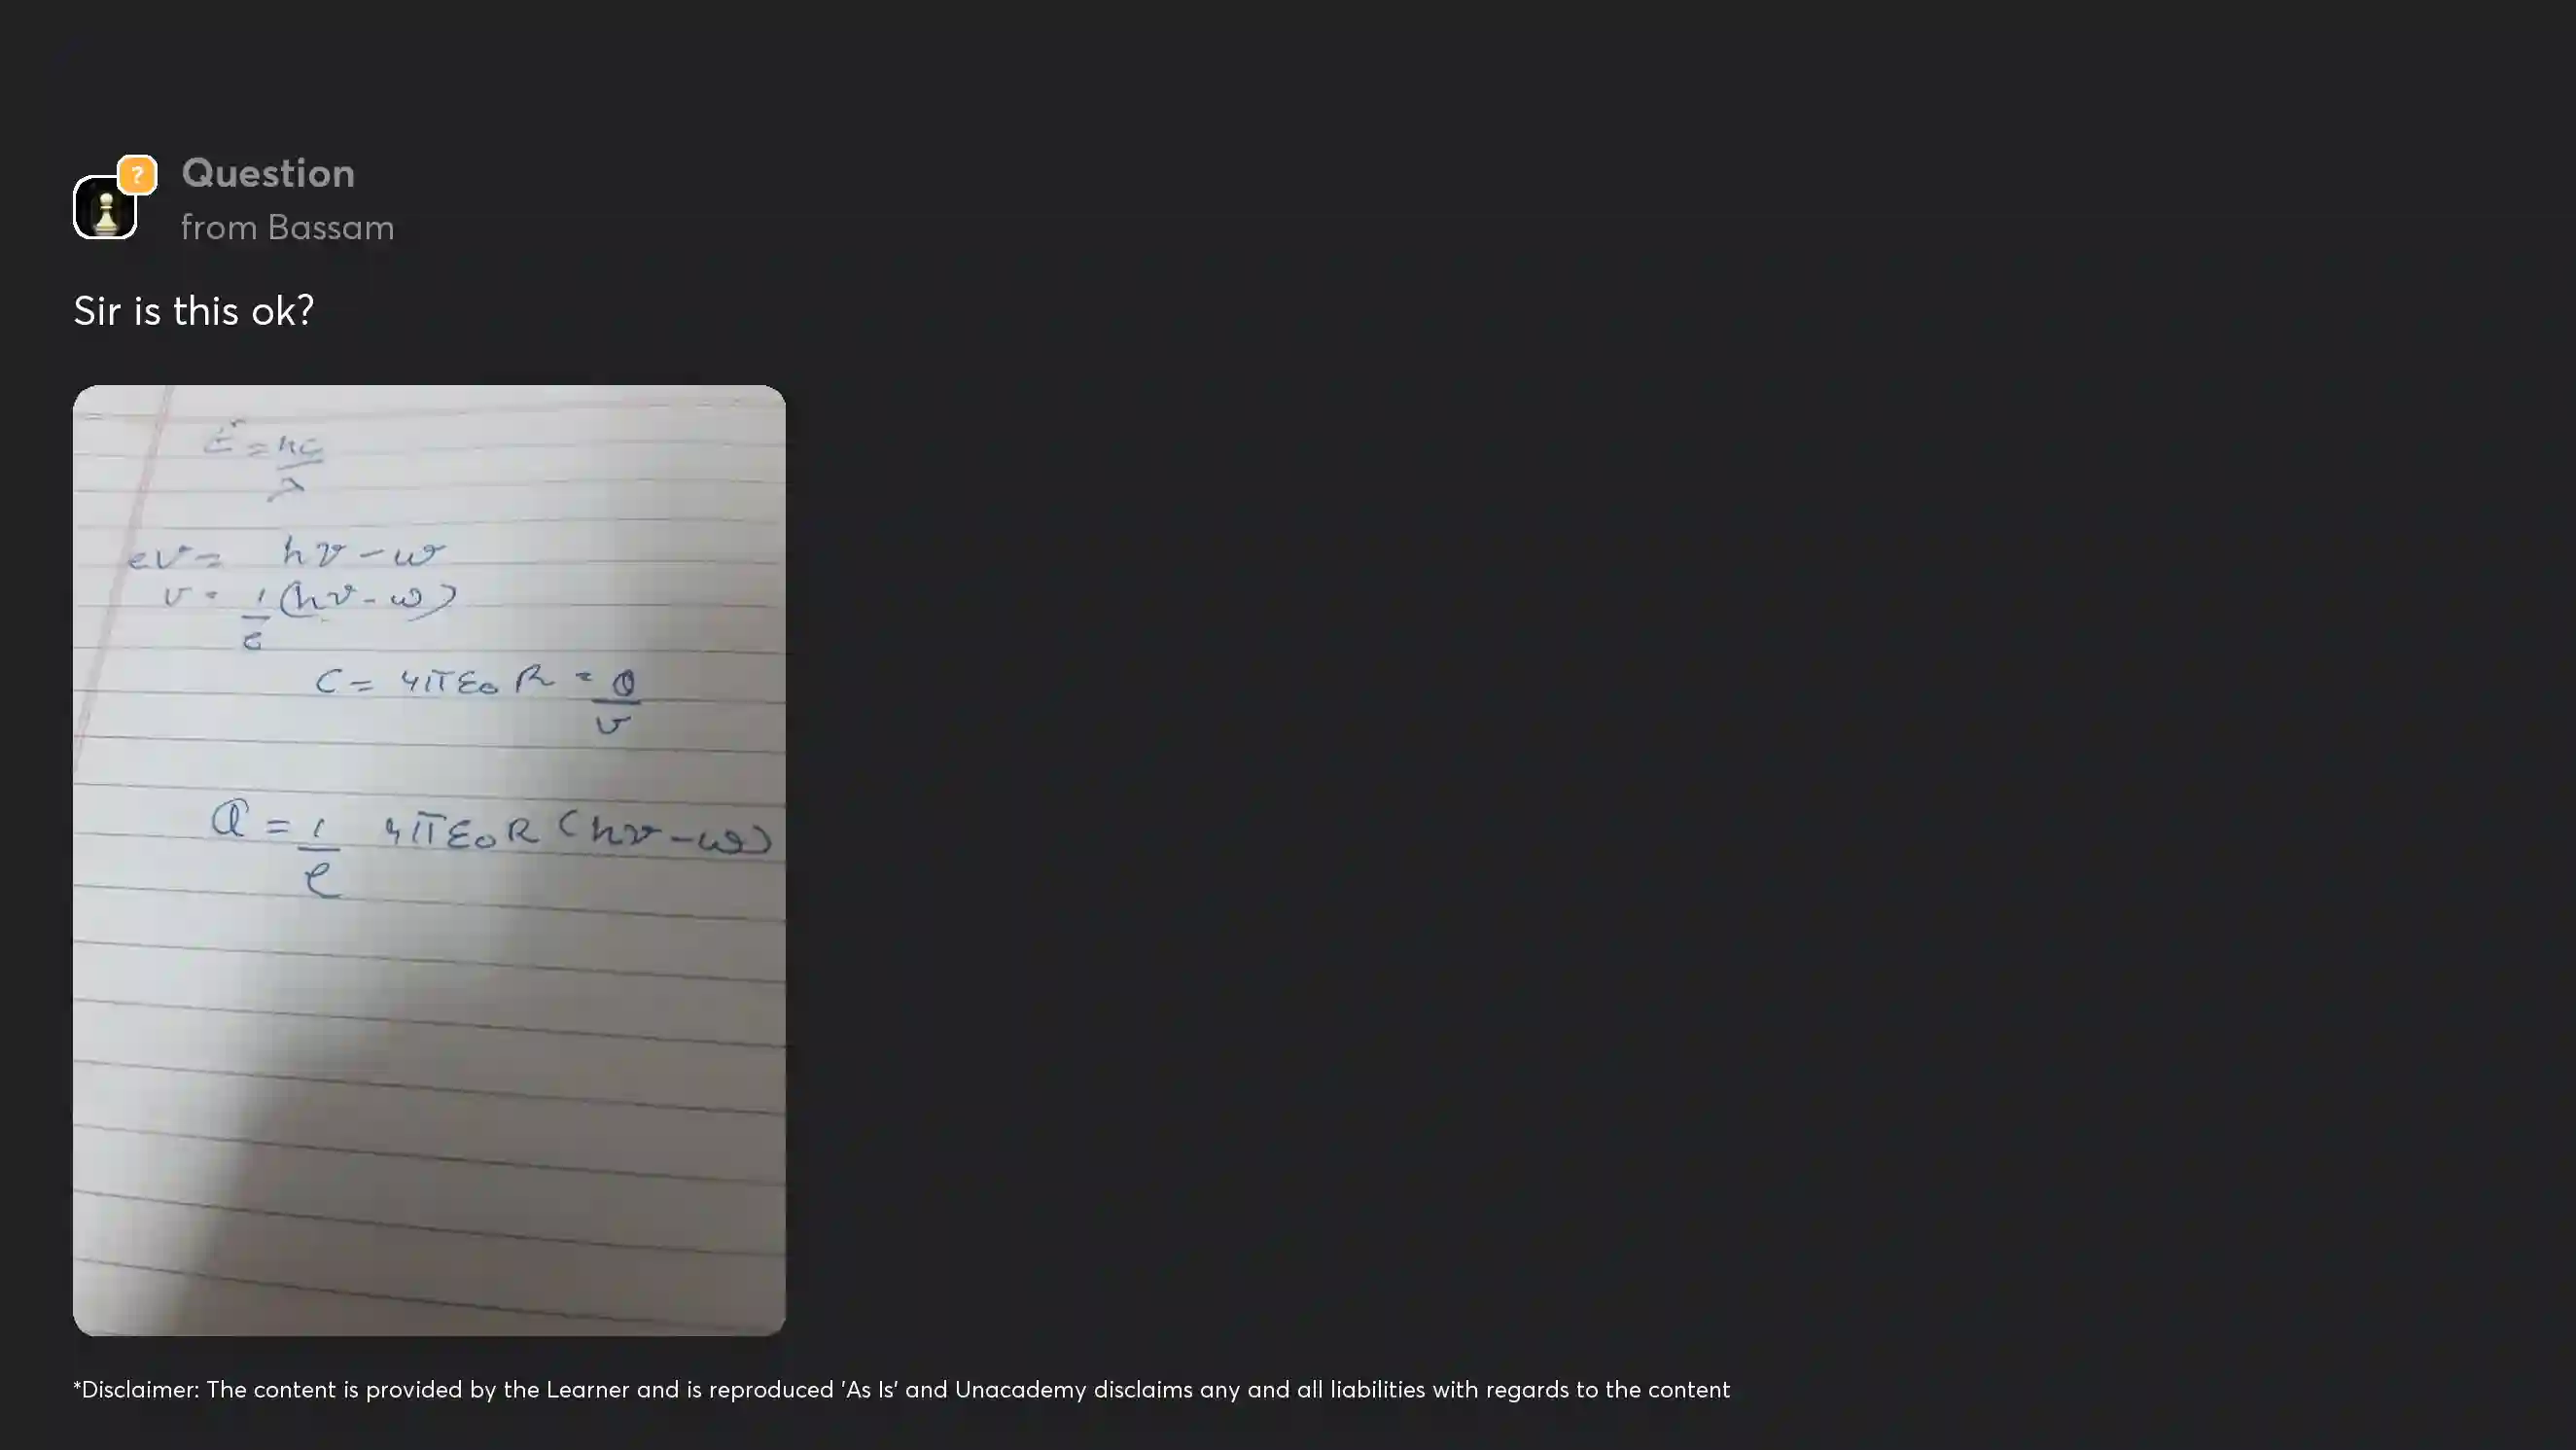 ?
Question
from Bassam
Sir is this ok?
E = hc
λ
eV = hν - w
V = 1 (hν - ω)
e
C = 4πε₀ R = Q
V
Q = 1 4πε₀R (hν - ω)
e
*Disclaimer: The content is provided by the Learner and is reproduced 'As Is' and Unacademy disclaims any and all liabilities with regards to the content